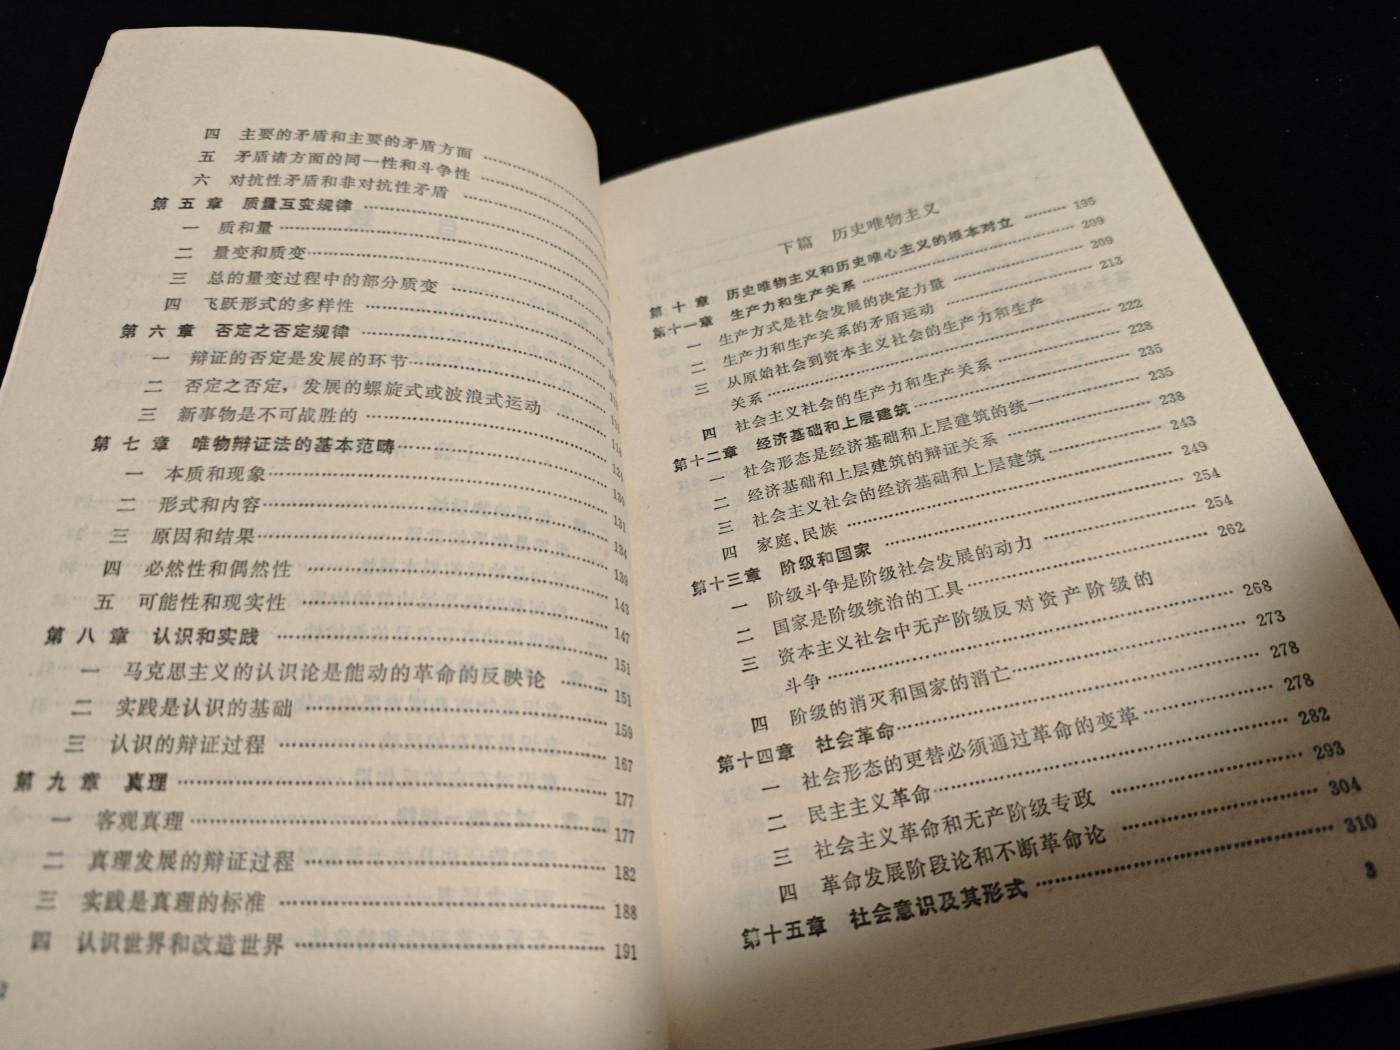 四 主要的矛盾和主要的矛盾方面
五 矛盾诸方面的同一性和斗争性
六 对抗性矛盾和非对抗性矛盾
第五章 质量互变规律
一 质和量
二 量变和质变
三 总的量变过程中的部分质变
四 飞跃形式的多样性
第六章 否定之否定规律
一 辩证的否定是发展的环节
二 否定之否定，发展的螺旋式或波浪式运动
三 新事物是不可战胜的
第七章 唯物辩证法的基本范畴 130
一 本质和现象 131
二 形式和内容 134
三 原因和结果 139
四 必然性和偶然性 143
五 可能性和现实性 147
第八章 认识和实践 151
一 马克思主义的认识论是能动的革命的反映论 151
二 实践是认识的基础 159
三 认识的辩证过程 167
第九章 真理 177
一 客观真理 177
二 真理发展的辩证过程 182
三 实践是真理的标准 188
四 认识世界和改造世界 191
2
下篇 历史唯物主义
第十章 历史唯物主义和历史唯心主义的根本对立 195
第十一章 生产力和生产关系 209
一 生产方式是社会发展的决定力量 209
二 生产力和生产关系的矛盾运动 213
三 从原始社会到资本主义社会的生产力和生产
关系 222
四 社会主义社会的生产力和生产关系 228
第十二章 经济基础和上层建筑 235
一 社会形态是经济基础和上层建筑的统一 235
二 经济基础和上层建筑的辩证关系 238
三 社会主义社会的经济基础和上层建筑 243
四 家庭、民族 249
第十三章 阶级和国家 254
一 阶级斗争是阶级社会发展的动力 254
二 国家是阶级统治的工具 262
三 资本主义社会中无产阶级反对资产阶级的
斗争 268
四 阶级的消灭和国家的消亡 273
第十四章 社会革命 278
一 社会形态的更替必须通过革命的变革 278
二 民主主义革命 282
三 社会主义革命和无产阶级专政 293
四 革命发展阶段论和不断革命论 304
第十五章 社会意识及其形式 310
3